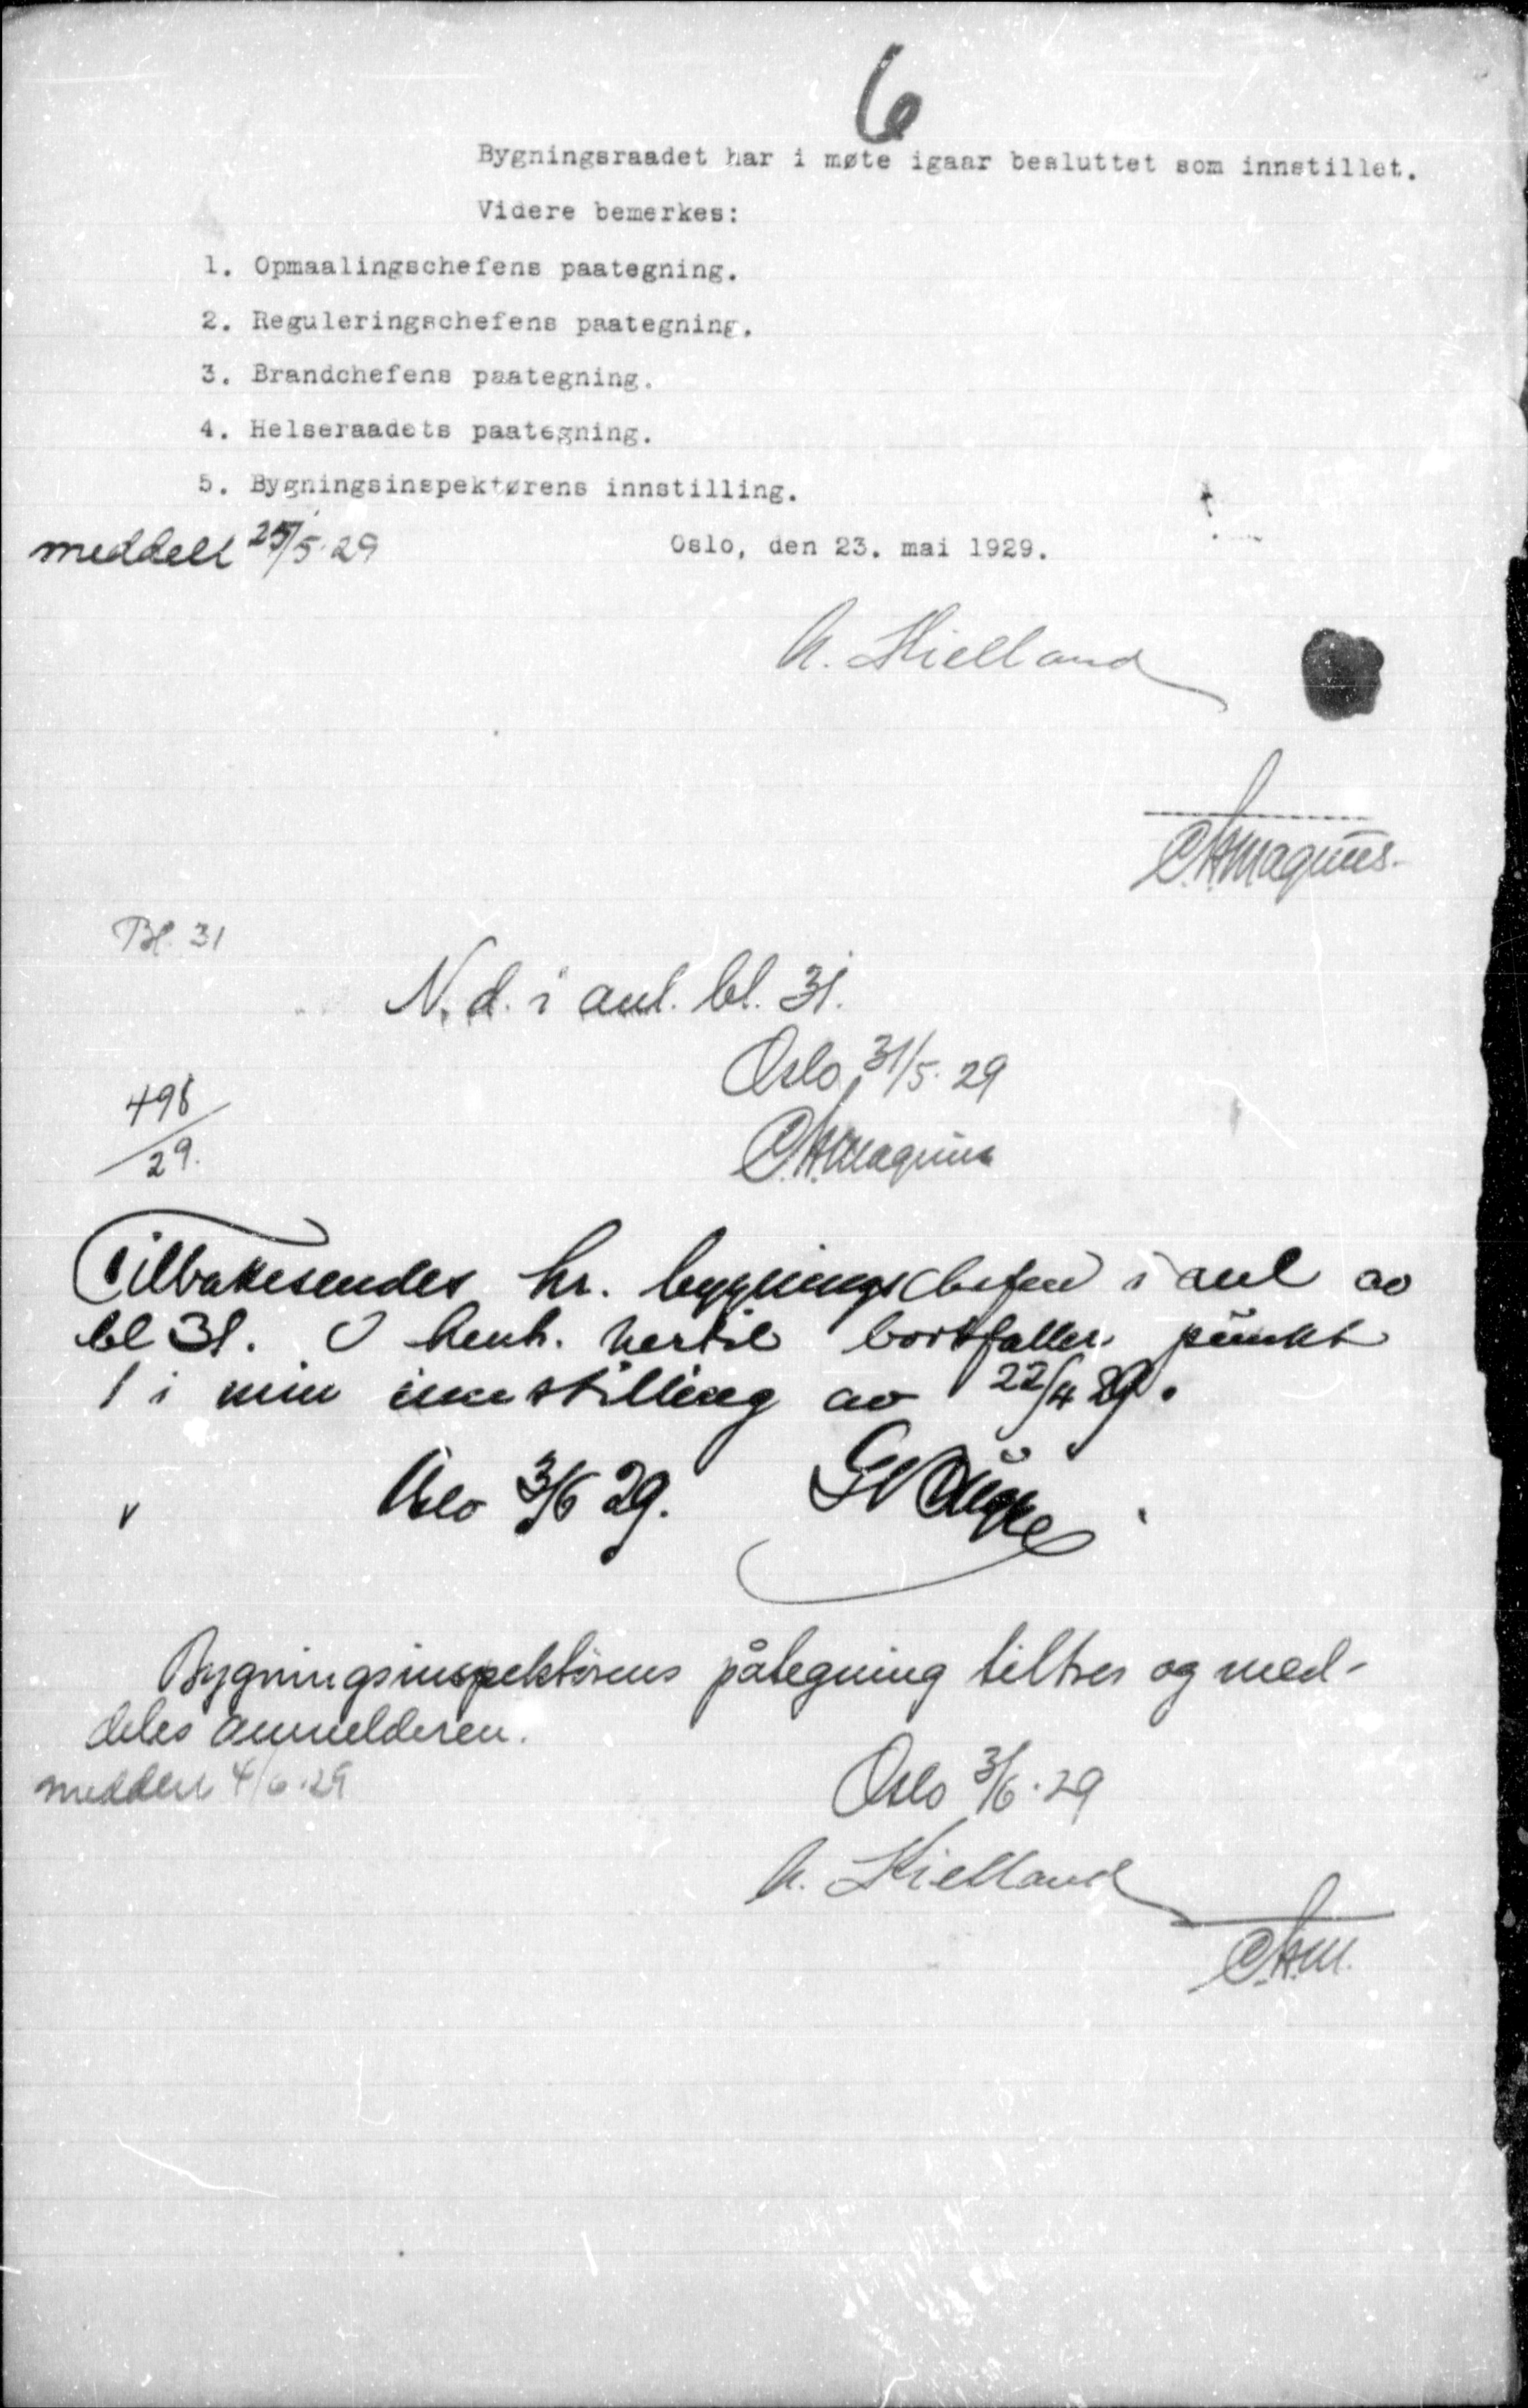 6
Bygningsraadet har i møte igaar besluttet som innstillet.
Videre bemerkes:
1. Opmaalingschefens paategning.
2. Reguleringschefens paategning.
3. Brandchefens paategning.
4. Helseraadets paategning.
5. Bygningsinspektørens innstilling.
meddelt 25/5-29
Oslo, den 23. mai 1929.
Kielland
C.H. Magnus.
Bl. 31
N.d. i anl. bl. 31.
Oslo, 31/5-29
498/29.
C.H. Magnus
Tilbakesendes hr. bygningschefen i anl av
bl 31. I henh. hertil bortfaller punkt
1 i min innstilling av 22/4 29.
Oslo 3/6 29.
Bygningsinspektörens påtegning tiltres og med-
deles anmelderen.
meddelt 4/6-29
Oslo 3/6-29
Kielland
C.H.M.